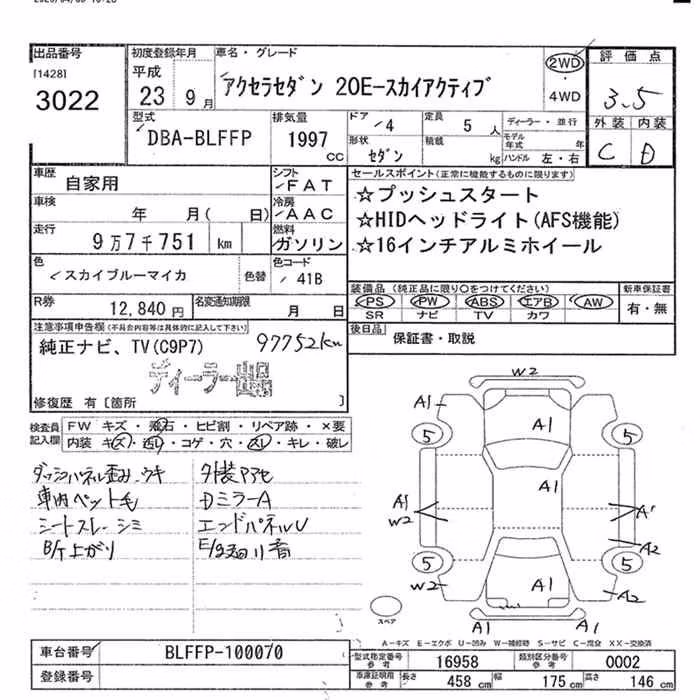 出品番号 初度登録年月 車名・グレード 評価点
[1428] 平成 2WD
3022 23 9月 アクセラセダン 20E-スカイアクティブ 4WD 3.5
型式 排気量 ドア 定員 ディーラー・並行 外装 内装
DBA-BLFFP 1997 CC 4 5人 モデル年式 年 C D
形状 セダン 積載 kg ハンドル 左・右
車歴 自家用 シフト FAT セールスポイント(正常に機能するものに限ります)
車検 年 月( 日) 冷房 AAC ☆プッシュスタート
走行 9万7千751 km 燃料 ガソリン ☆HIDヘッドライト(AFS機能)
☆16インチアルミホイール
色 スカイブルーマイカ 色替 色コード 41B
装備品(純正品に限り○をつけてください) 新車保証書
PS PW ABS エアB AW 有・無
SR ナビ TV カワ
R券 12,840円 名変通知期限 月 日
後日品 保証書・取説
注意事項申告欄(不具合内容等は具体的に記入して下さい)
純正ナビ、TV(C9P7) 97752km
ディーラー出品
修復歴 有[箇所 ]
検査員記入欄 FW キズ・飛石・ヒビ割・リペア跡・×要
内装 キズ・汚れ・コゲ・穴・スレ・キレ・破レ
ダッシュパネル歪み、ウキ 外装アアセ
車内ペット毛 DミラーA
シートスレ、シミ エンドパネルU
B/ケ上がり
W2
A1 A1
5 5
A1
A1 W2 A1
A2
5 5
W2 A1 A2
A1 A1
スペア
A-キズ E-エクボ U-凹み W-補修跡 S-サビ C-腐食 XX-交換済
車台番号 BLFFP-100070
登録番号
型式指定番号 参考 16958 類別区分番号 参考 0002
車庫証明用 参考 長さ 458 cm 幅 175 cm 高さ 146 cm